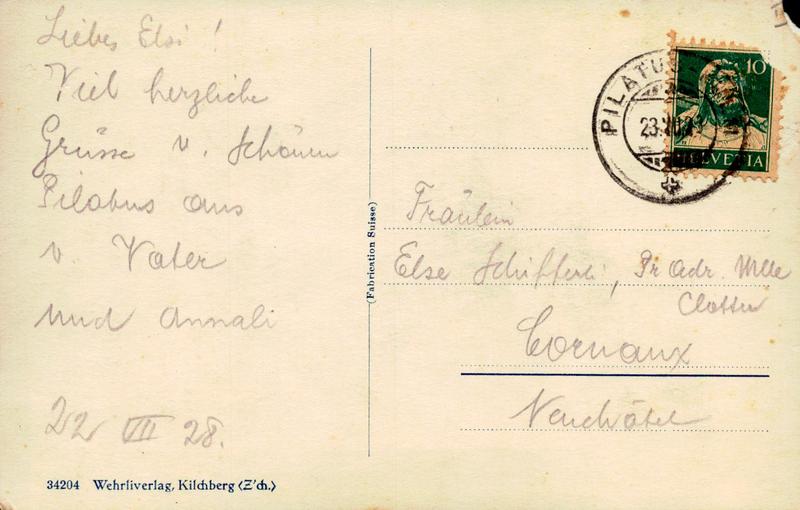 Liebes Elsi !
Viel herzliche
Grüsse v. Schönen
Pilatus aus
v. Vater
und Annali
22 VII 28.
34204 Wehrliverlag, Kilchberg (Z'ch.)
(Fabrication Suisse)
PILATUS
23.VII.28
10
HELVETIA
Fräulein
Else Schifferli, Pr Adr. Mlle
Clottu
Cornaux
Neuchâtel